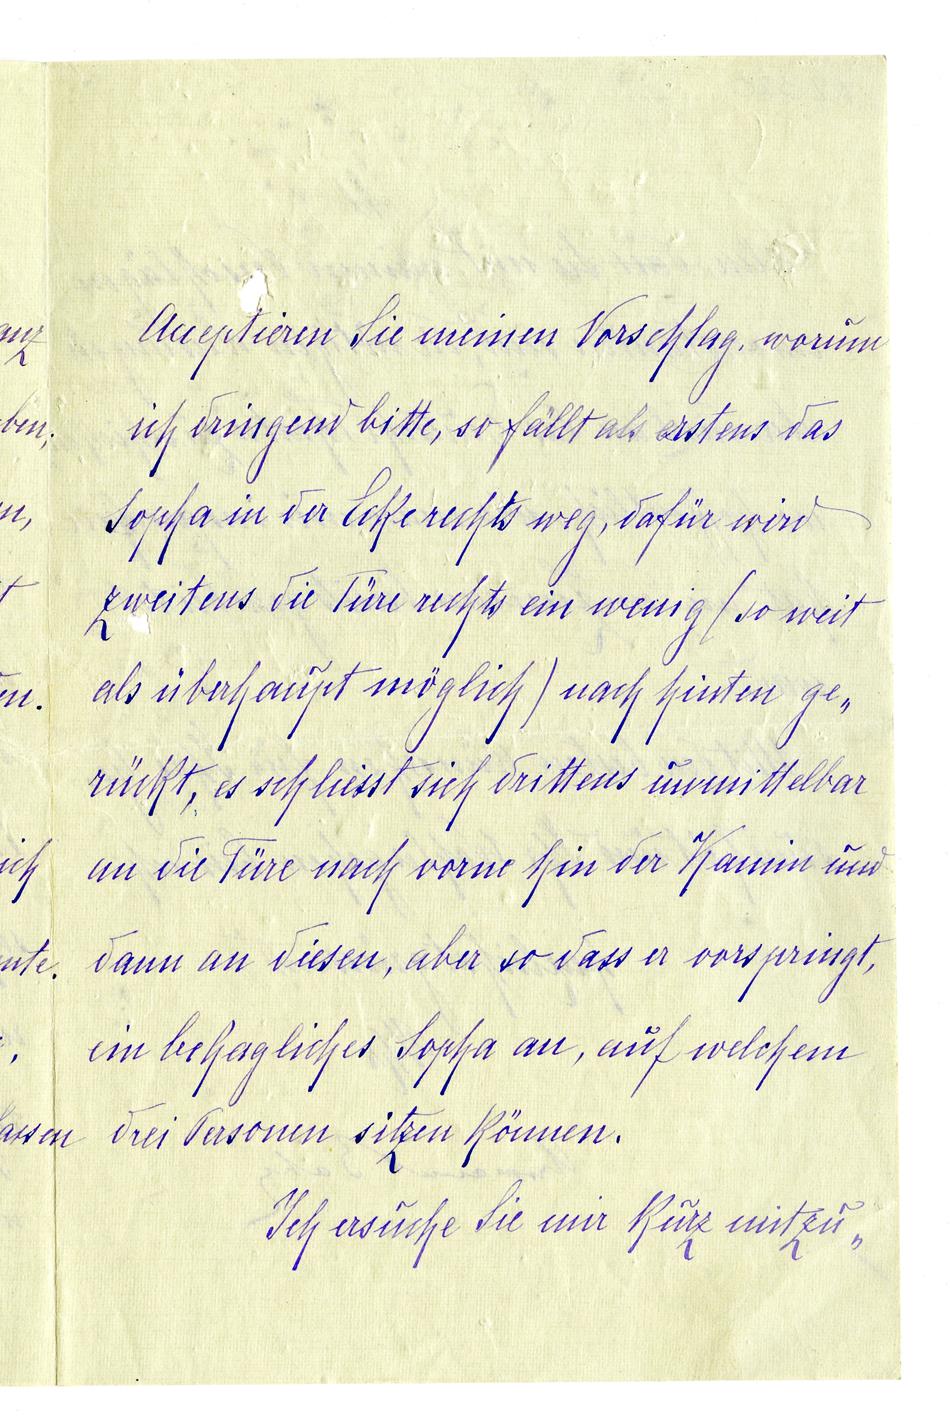 Acceptieren Sie meinen Vorschlag, worum
ich dringend bitte, so fällt als erstens das
Sopha in der Ecke rechts weg, dafür wird
zweitens die Türe rechts ein wenig (so weit
als überhaupt möglich) nach hinten ge„
rückt, es schliesst sich drittens unmittelbar
an die Türe nach vorne hin der Kamin und
dann an diesen, aber so dass er vorspringt,
ein behagliches Sopha an, auf welchem
drei Personen sitzen können.
Ich ersuche Sie mir kurz mitzu„